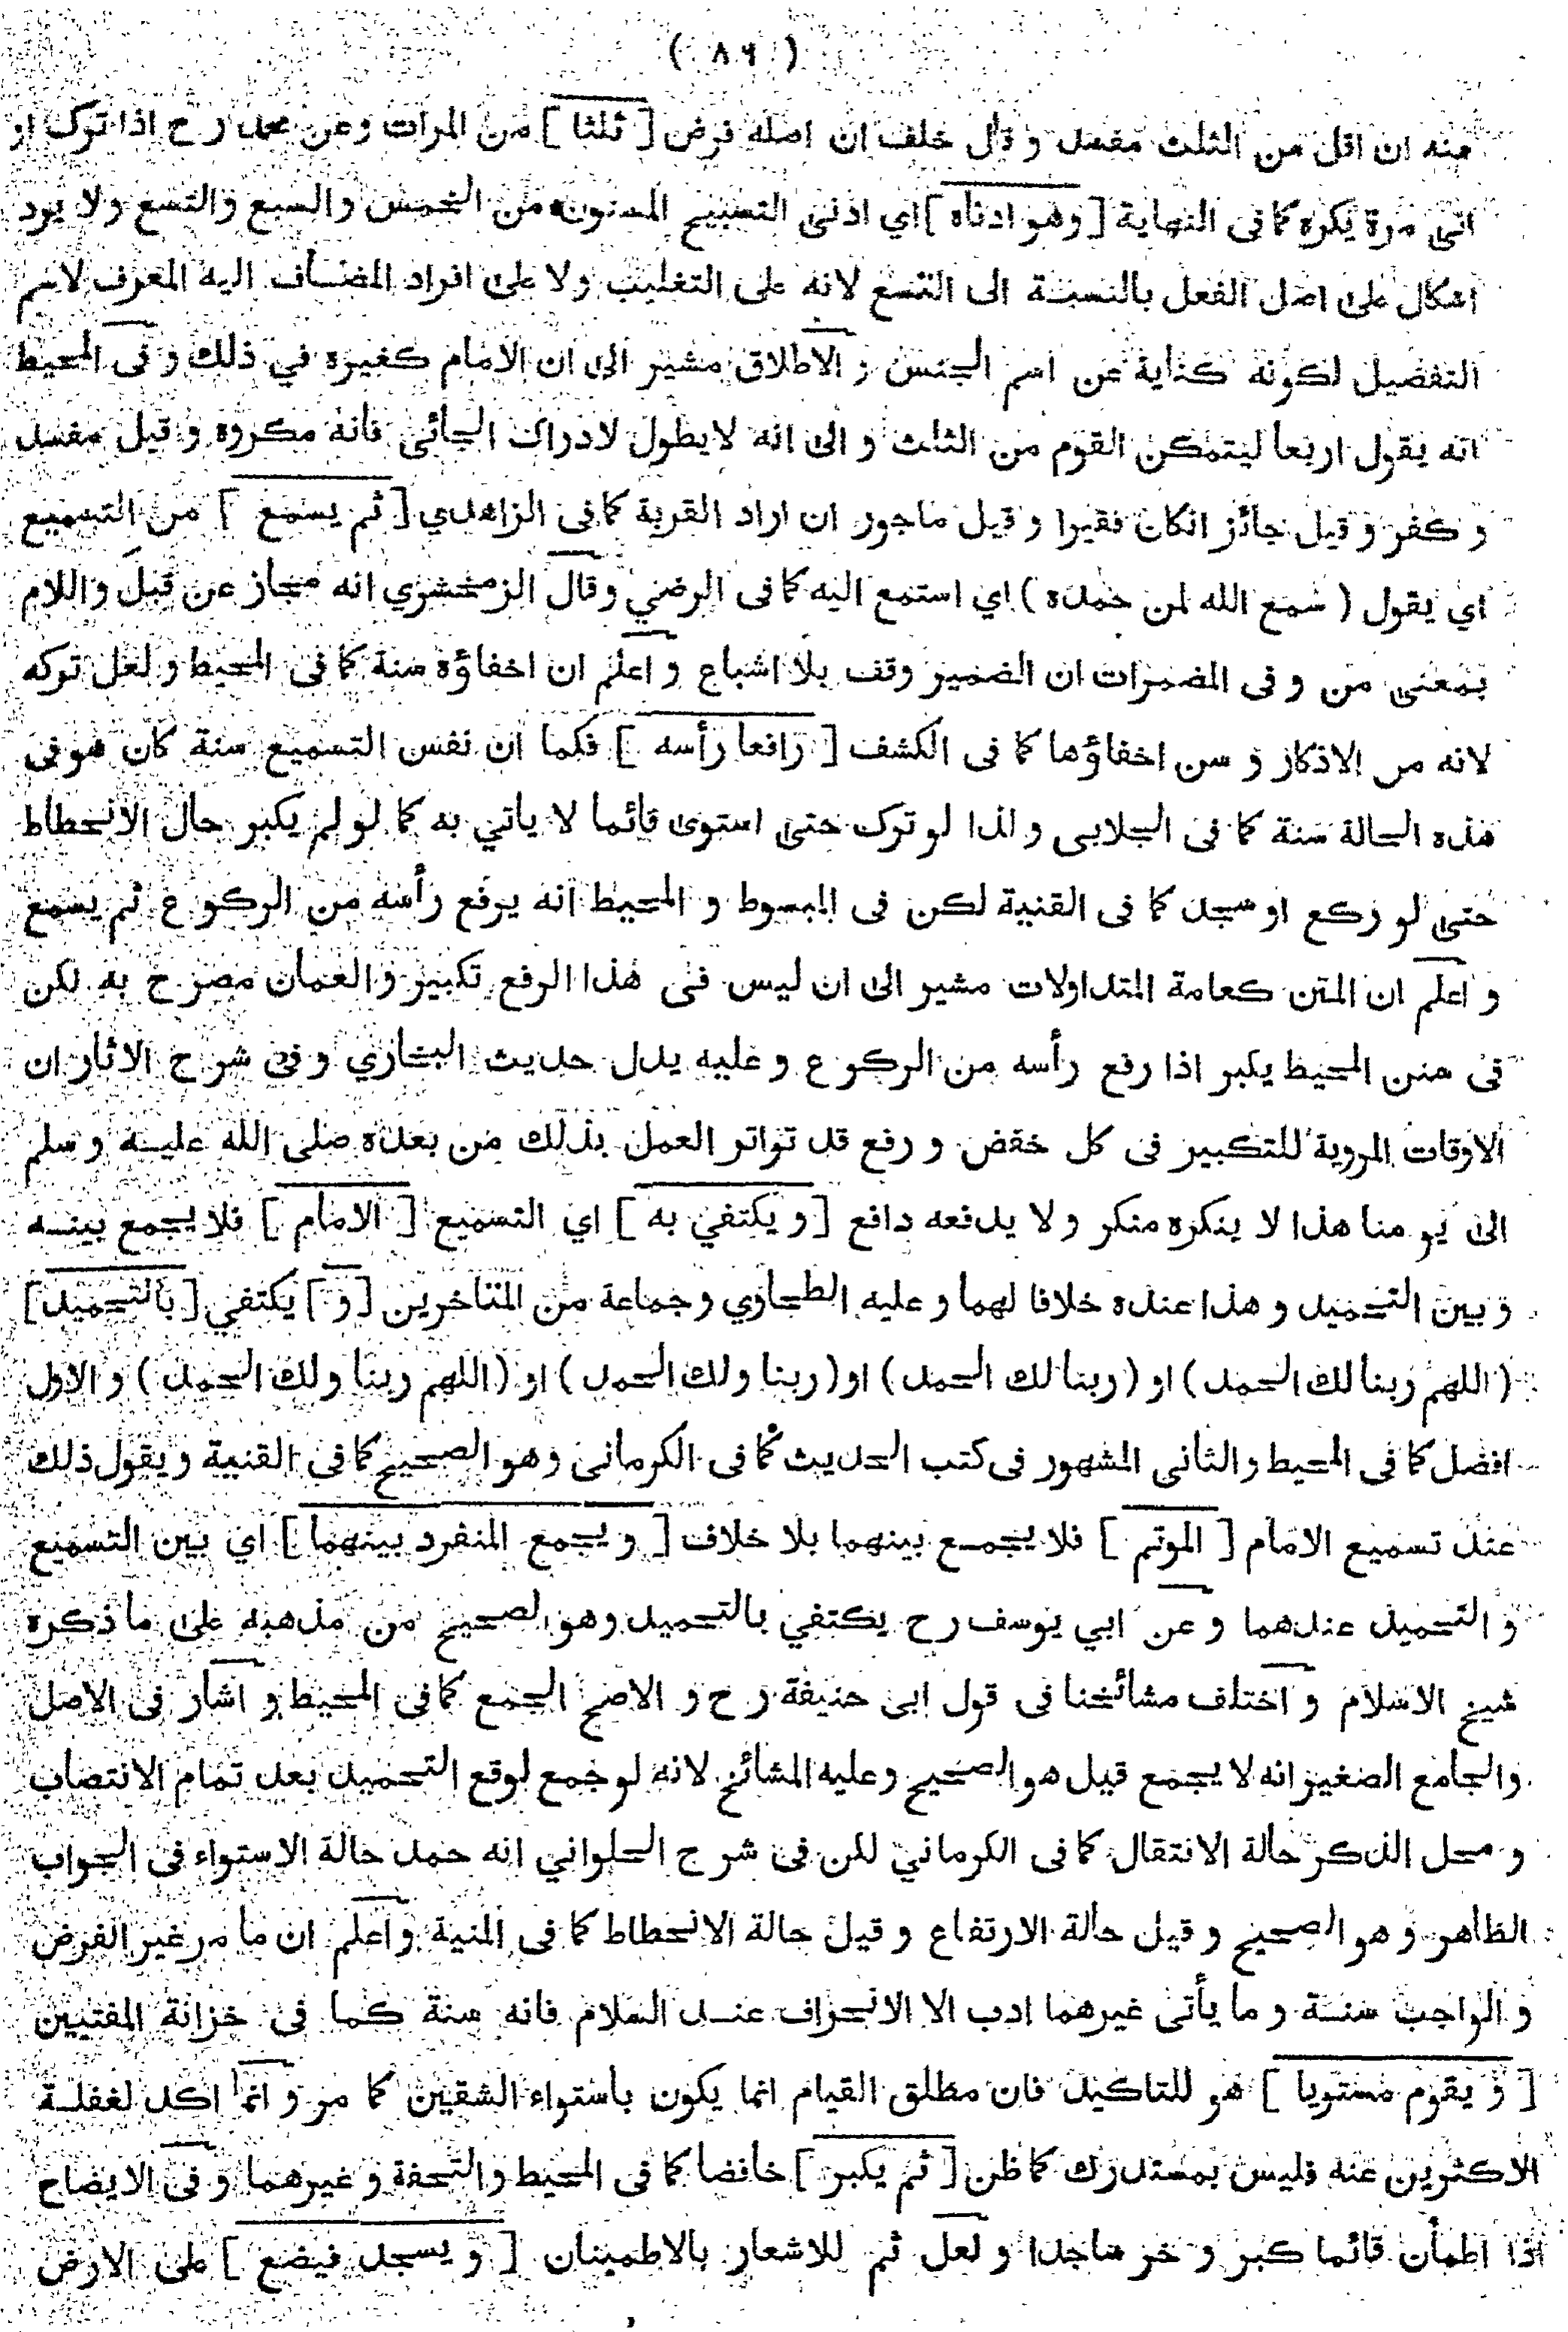 ( ٨٦ )
منه ان اقل من الثلث مفسد و قال خلف ان اصله فرض [ ثلثا ] من المرات وعن محمد رح اذا ترك او
اتى مرة يكره كما فى النهاية [ وهو ادناه ] اي ادنى التسبيح المسنون من الخمس والسبع والتسع ولا يرد
اشكال على اصل الفعل بالنسبة الى التسع لانه على التغليب ولا على افراد المضاف اليه المعرف لاسم
التفضيل لكونه كناية عن اسم الجنس و الاطلاق مشير الى ان الامام كغيره في ذلك و فى المحيط
انه يقول اربعا ليتمكن القوم من الثلث و الى انه لايطول لادراك الجائى فانه مكروه و قيل مفسد
و كفر و قيل جائز انكان فقيرا و قيل ماجور ان اراد القربة كما فى الزاهدي [ ثم يسمع ] من التسميع
اي يقول ( سمع الله لمن حمده ) اي استمع اليه كما فى الرضي وقال الزمخشري انه مجاز عن قبل واللام
بمعنى من و فى المضمرات ان الضمير وقف بلا اشباع و اعلم ان اخفاؤه سنة كما فى المحيط و لعل تركه
لانه من الاذكار و سن اخفاؤها كما فى الكشف [ رافعا رأسه ] فكما ان نفس التسميع سنة كان هو فى
هذه الحالة سنة كما فى الجلابى و لذا لو ترك حتى استوى قائما لا ياتي به كما لو لم يكبر حال الانحطاط
حتى لو ركع او سجد كما فى القنية لكن فى المبسوط و المحيط انه يرفع رأسه من الركوع ثم يسمع
و اعلم ان المتن كعامة المتداولات مشير الى ان ليس فى هذا الرفع تكبير و العمان مصرح به لكن
فى سنن المحيط يكبر اذا رفع رأسه من الركوع و عليه يدل حديث البخاري و فى شرح الاثار ان
الاوقات المروية للتكبير فى كل خفض و رفع قد تواتر العمل بذلك من بعده صلى الله عليه و سلم
الى يومنا هذا لا ينكره منكر و لا يدفعه دافع [ و يكتفي به ] اي التسميع [ الامام ] فلا يجمع بينه
و بين التحميد و هذا عنده خلافا لهما و عليه الطحاوي وجماعة من المتاخرين [ و ] يكتفي [ بالتحميد ]
( اللهم ربنا لك الحمد ) او ( ربنا لك الحمد ) او ( ربنا ولك الحمد ) او ( اللهم ربنا ولك الحمد ) و الاول
افضل كما فى المحيط و الثانى المشهور فى كتب الحديث كما فى الكرمانى وهو الصحيح كما في القنية و يقول ذلك
عند تسميع الامام [ الموتم ] فلا يجمع بينهما بلا خلاف [ و يجمع المنفرد بينهما ] اي بين التسميع
و التحميد عندهما و عن ابي يوسف رح يكتفي بالتحميد وهو الصحيح من مذهبه على ما ذكره
شيخ الاسلام و اختلف مشائخنا فى قول ابى حنيفة رح و الاصح الجمع كما فى المحيط و اشار فى الاصل
والجامع الصغير انه لا يجمع قيل هو الصحيح وعليه المشائخ لانه لوجمع لوقع التحميد بعد تمام الانتصاب
و محل الذكر حالة الانتقال كما فى الكرماني لكن فى شرح الحلواني انه حمد حالة الاستواء فى الجواب
الظاهر و هو الصحيح و قيل حالة الارتفاع و قيل حالة الانحطاط كما فى المنية و اعلم ان ما مر غير الفرض
و الواجب سنة و ما يأتى غيرهما ادب الا الانحراف عند السلام فانه سنة كما فى خزانة المفتيين
[ و يقوم مستويا ] هو للتاكيد فان مطلق القيام انما يكون باستواء الشقين كما مر و انما اكد لغفلة
الاكثرين عنه فليس بمستدرك كما ظن [ ثم يكبر ] خافضا كما فى المحيط و التحفة و غيرهما و فى الايضاح
اذا اطمأن قائما كبر و خر ساجدا و لعل ثم للاشعار بالاطمينان [ و يسجد فيضع ] على الارض